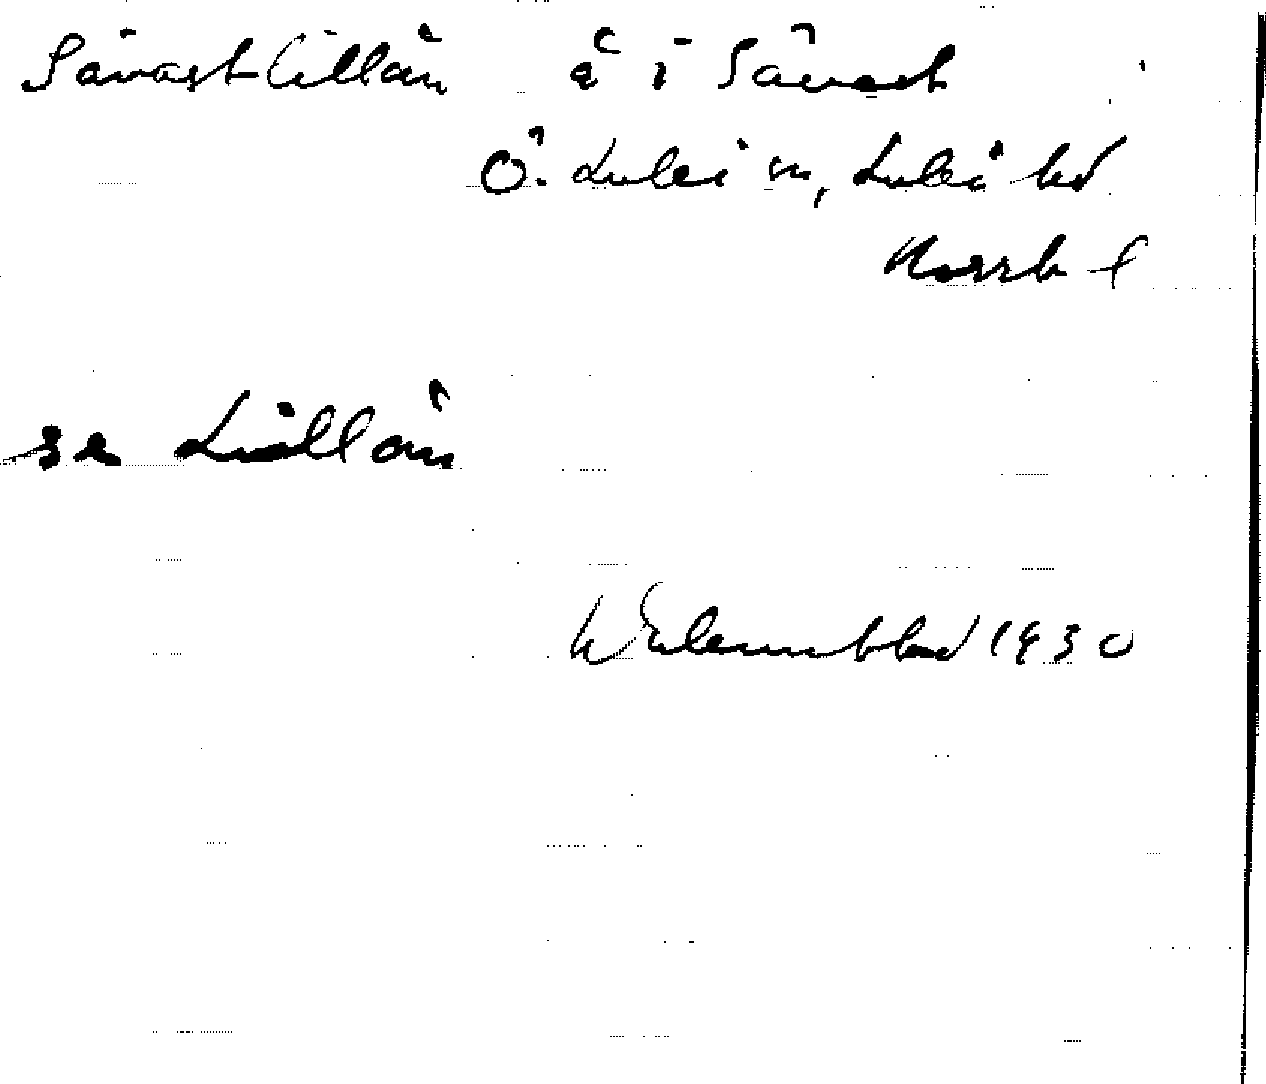 Sävastlillån å i Sävast
Ö. Luleå sn, Luleå hd
Norrb l
se Lillån
Wulembblad 1930